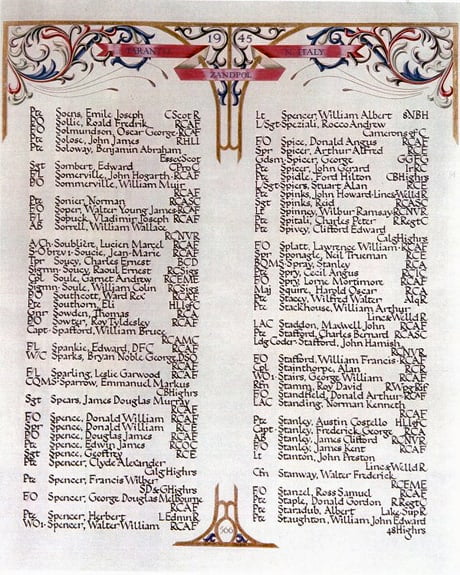 19 45
N. ITALY
ZANDPOL
Pte Soens, Emile Joseph CScot R
F/O Sollie, Roald Fredrik RCAF
F/O Solmundson, Oscar George RCAF
Pte Solose, John James RHLI
Pte Soloway, Benjamin Abraham
EssexScot
Sgt Sombert, Edward CProC
F/L Somerville, John Hogarth RCAF
F/O Sommerville, William Muir
RCAF
Pte Sonier, Norman RCASC
F/O Soper, Walter Young James RCAF
F/L Sopuck, Vladimir Joseph RCAF
AB Sorrell, William Wallace
RCNVR
A/Ch Soublière, Lucien Marcel RCAF
Jean-Marie RCAF
Tpr Soucy, Charles Ernest BCD
Sigmn Soucy, Raoul Ernest RCSigs
Cpl Soule, Garnet Andrew RCEME
Sigmn Soule, William Colin RCSigs
F/O Southcott, Ward Rex RCAF
Pte Southorn, Eli HLIofC
Gnr Sowden, Thomas RCA
F/O Sowter, Roy Tyldesley RCAF
Capt Spafford, William Bruce
RCAMC
F/L Spankie, Edward, DFC RCAF
W/C Sparks, Bryan Noble George DSO
RCAF
F/L Sparling, Leslie Garwood RCAF
CQMS Sparrow, Emmanuel Markus
CBHighrs
Sgt Spears, James Douglas Murray
RCAF
F/O Spence, Donald William RCAF
Spr Spence, Donald William RCE
P/O Spence, Douglas James RCAF
Pte Spence, Edwin James RCOC
Sgt Spence, Geoffrey RCE
Pte Spencer, Clyde Alexander
CalgHighrs
Pte Spencer, Francis Wilber
SD&GHighrs
F/O Spencer, George Douglas Melbourne
RCAF
Pte Spencer, Herbert LEdmnR
WO1 Spencer, Walter William RCAF
Lt Spencer, William Albert 8NBH
L/Sgt Speziali, Rocco Andrew
CameronsofC
F/O Spice, Donald Angus RCAF
Spr Spicer, Arthur Alfred RCE
Gdsm Spicer, George GGFG
Pte Spicer, John Gerard IrRC
Pte Spidle, Ford Hilton CBHighrs
Spiers, Stuart Alan RCE
Pte Spinks, John Howard LincWelldR
Sgt Spinks, Reid RCASC
Lt Spinney, Wilbur Ramsay RCNVR
Pte Spitali, Charles Peter RRegtC
Pte Spivey, Clifford Edward
CalgHighrs
F/O Splatt, Lawrence William RCAF
Spr Sponagle, Neil Trueman RCE
RQMS Spray, Stanley RCA
Pte Spry, Cecil Angus
F/O Spry, Lorne Mortimore RCAF
Maj Squire, Harold Oscar RCA
Pte Stacey, Wilfred Walter AlqR
Pte Stackhouse, William Arthur
LincWelldR
LAC Staddon, Maxwell John RCAF
Pte Stafford, Charles Bernard RCASC
Ldg Coder Stafford, John Hamish
RCNVR
F/O Stafford, William Francis RCAF
Cpl Stainthorpe, Alan RCR
WO1 Stairs, George William RCAF
Rfn Stamm, Roy David RWpgRif
F/O Standfield, Donald Arthur RCAF
LAC Standing, Norman Kenneth
RCAF
Pte Stanley, Austin Costello HLIofC
Capt Stanley, Frederick George RCA
AB Stanley, James Clifford RCNVR
F/O Stanley, James Kent RCAF
Lt Stanton, John Preston
LincWelldR
Cfn Stanway, Walter Frederick
RCEME
F/O Stanzel, Ross Samuel RCAF
Pte Staple, Donald Gordon RRegtC
Pte Staradub, Albert LakeSupR
Pte Staughton, William John Edward
48Highrs
566